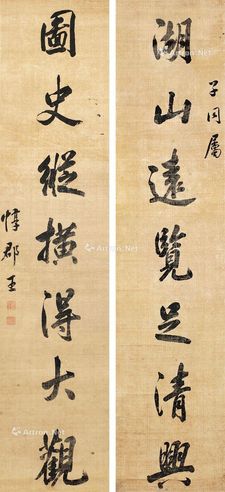 子同屬
湖山遠覽足清興
圖史縱橫得大觀
惇郡王
Artron.Net
Artron.Net
Artron.Net
Artron.Net